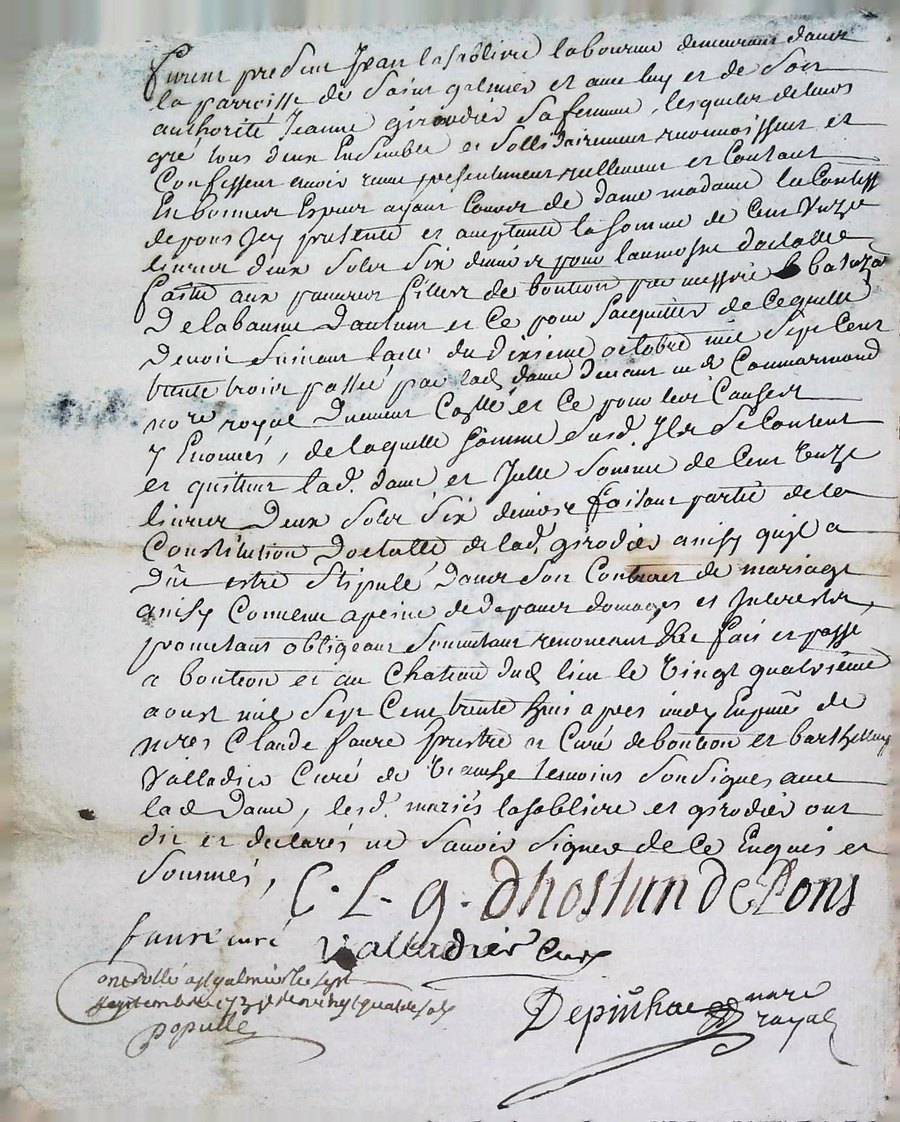 furent presens Jean lasabliere laboureur demeurant dans
la parroisse de Saint galmier et avec luy et de Son
authorité Jeanne girodier Sa femme, lesquels de leurs
gré tous deux Ensemble et Sollidairement reconnoissent et
Confessent avoir receu presentement reellement et Contant
En bonnes Especes ayant Cours de dame madame la Contesse
de pons Icy presente et acceptante la Somme de Cent Unze
livres deux Sols Six deniers pour laumosne dotalle
faitte aux pauvres filles de boution par messire balaza
De la baume Dautun et Ce pour Sacquitter de Ce quelle
Devoit Suivant lacte du dixieme octobre mil Sept Cent
trente trois passée par lad. dame devant me de Commarmond
nore royal et Ce pour les Causes
y Enoncés, de laquelle Somme Susd. Ils Se Contentent
et quittent lad. dame et Icelle Somme de Cent Unze
livres Deux Sols Six deniers faisant partie de la
Constitution Dotalle de lad. girodier ainsy quil a
Dû estre Stipulé dans Son Contract de mariage
ainsy Convenu a peine de depans domages et Interests,
promettant obligeant Soumettant renonceant &c fait et passé
a boution et au Chateau dud. lieu le Vingt quatrieme
aoust mil Sept Cent trente huit apres midy En pñce de
mires Claude faure prestre et Curé de boution et barthellemy
Valladier Curé de temoins Sousignes avec
lad. Dame, lesd. mariés lasabliere et girodier ont
dit et declarés ne Savoir Signer de Ce Enquis et
Sommés,
C. L. g. dhostun De Pons
faure curé Valladier Curé
Controllé a St galmier le sept
septembre 173
Depinhac nore
royal
populle